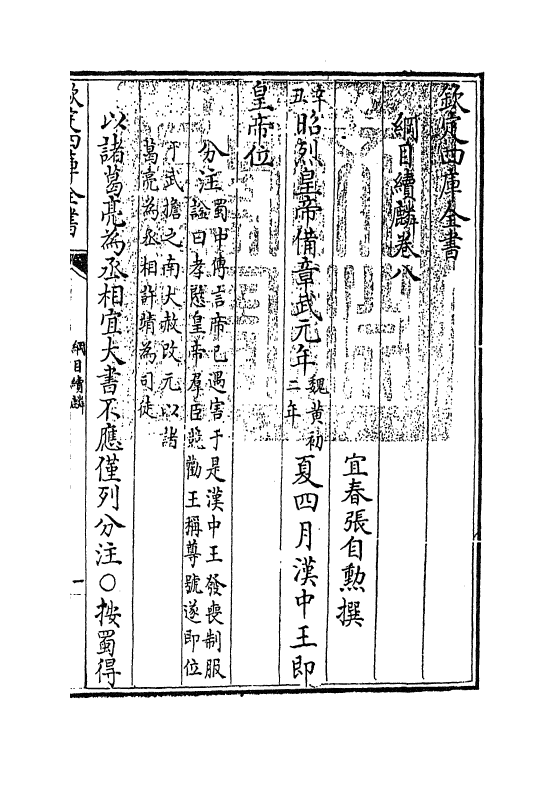 欽定四庫全書
綱目續麟卷八
宜春張自勲撰
辛丑昭烈皇帝備章武元年魏黃初二年夏四月漢中王即
皇帝位
分注蜀中傳言帝已遇害于是漢中王發喪制服
諡曰孝愍皇帝羣臣競勸王稱尊號遂即位
于武擔之南大赦改元以諸
葛亮為丞相許靖為司徒
以諸葛亮為丞相宜大書不應僅列分注○按蜀得
欽定四庫全書
綱目續麟
一